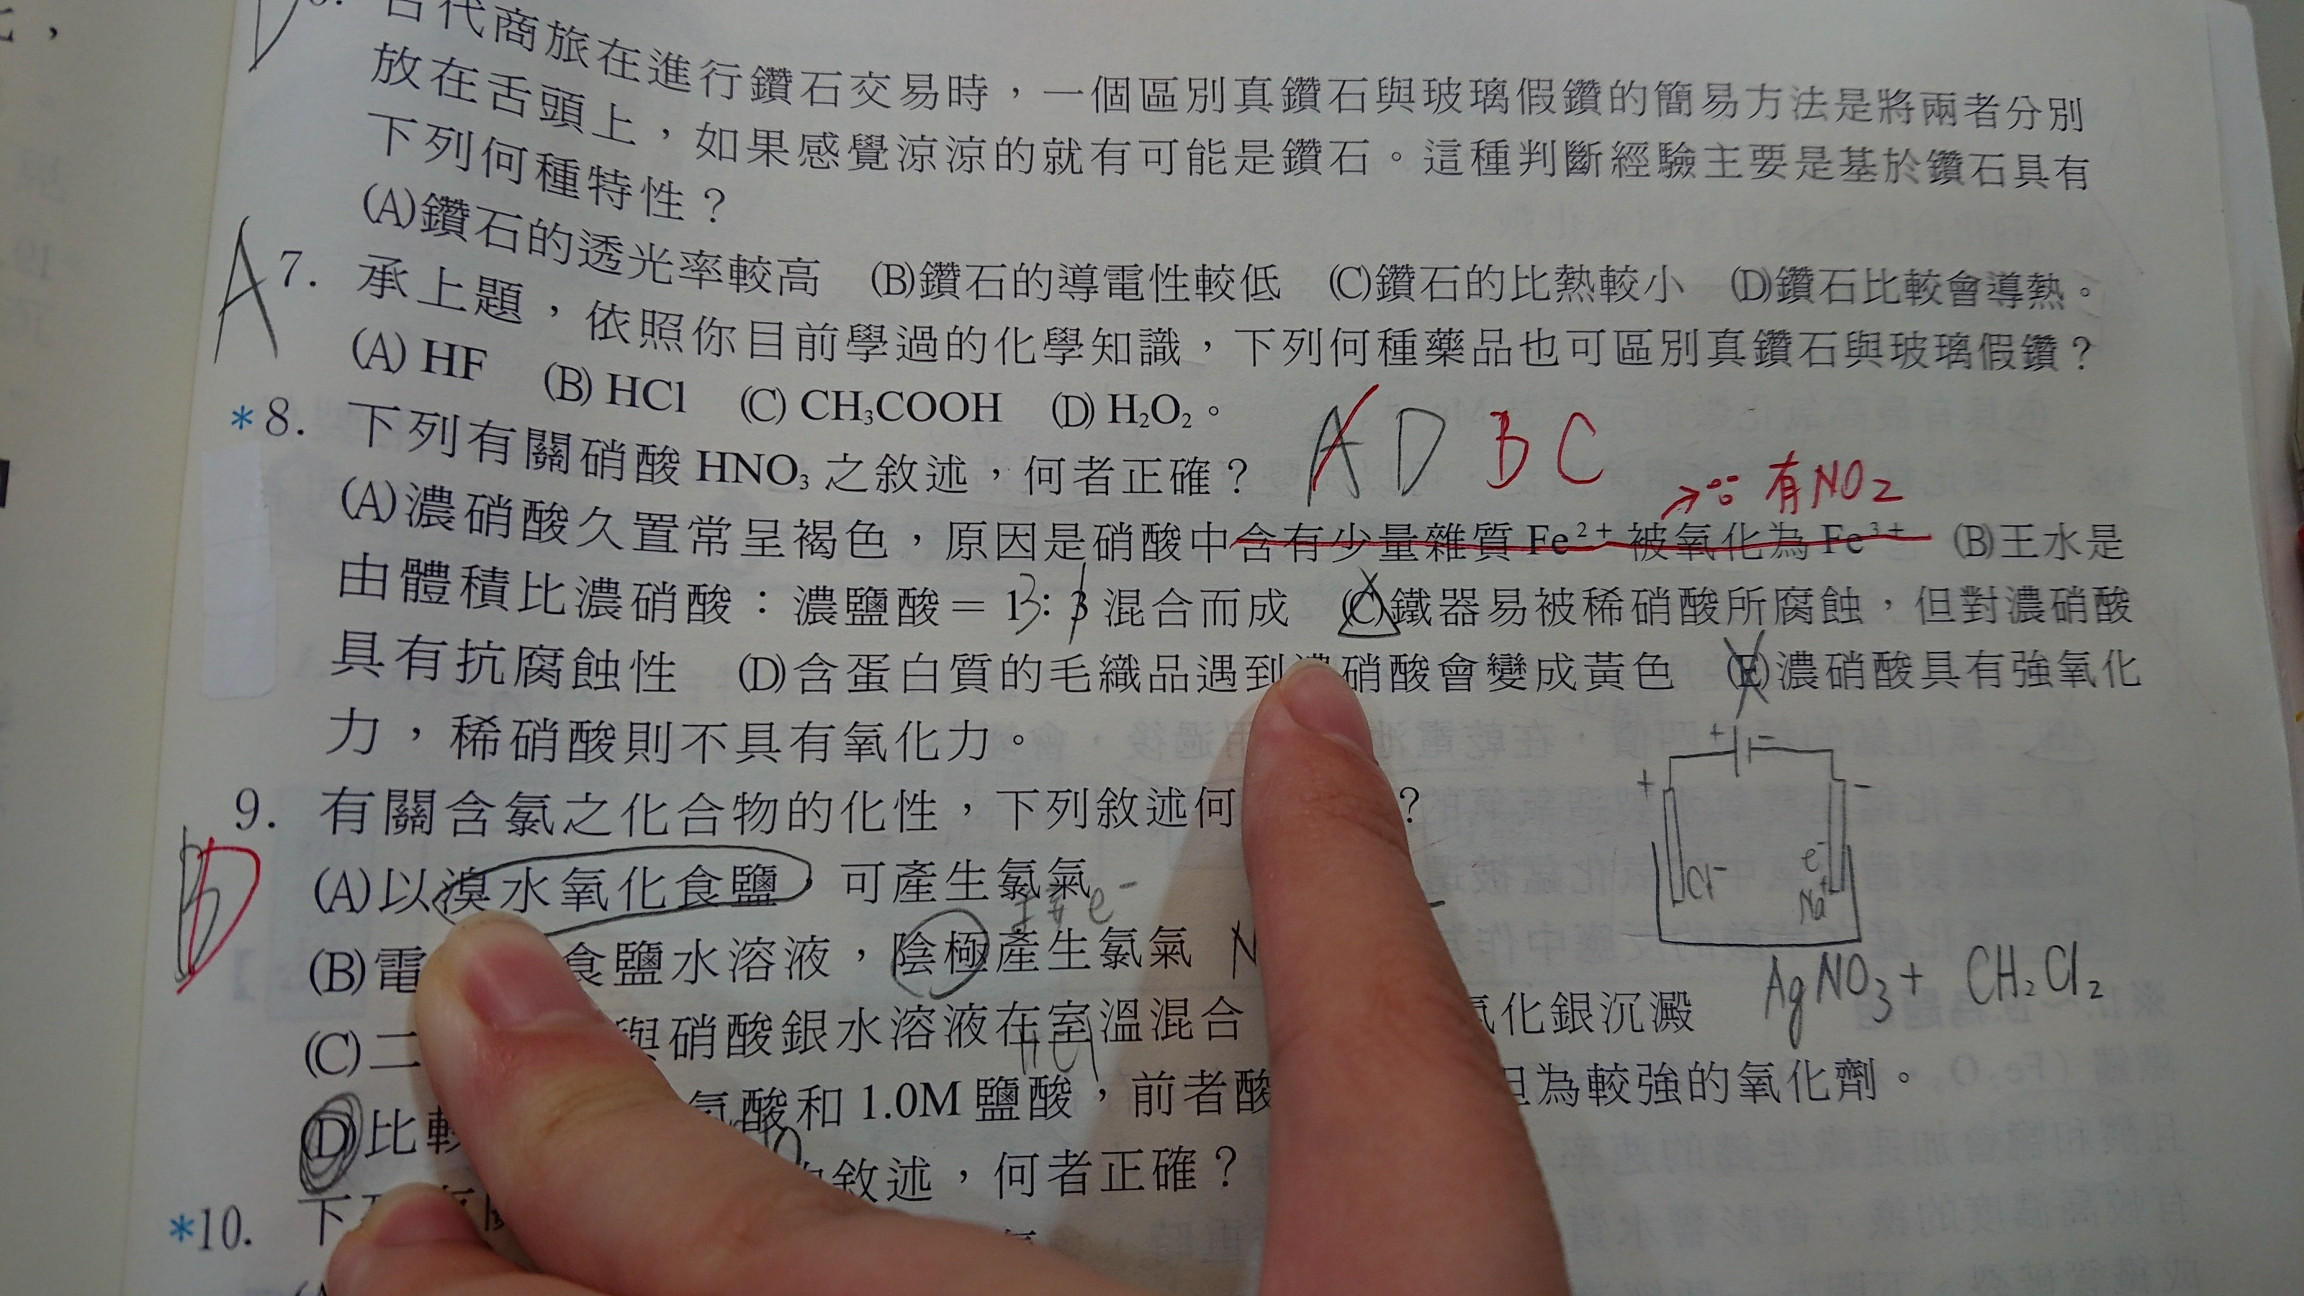 6. 古代商旅在進行鑽石交易時,一個區別真鑽石與玻璃假鑽的簡易方法是將兩者分別
放在舌頭上,如果感覺涼涼的就有可能是鑽石。這種判斷經驗主要是基於鑽石具有
下列何種特性?
(A)鑽石的透光率較高 (B)鑽石的導電性較低 (C)鑽石的比熱較小 (D)鑽石比較會導熱。
A 7. 承上題,依照你目前學過的化學知識,下列何種藥品也可區別真鑽石與玻璃假鑽?
(A) HF (B) HCl (C) CH₃COOH (D) H₂O₂。
*8. 下列有關硝酸 HNO₃ 之敘述,何者正確? A D B C
→∵有NO₂
(A)濃硝酸久置常呈褐色,原因是硝酸中含有少量雜質 Fe²⁺ 被氧化為 Fe³⁺ (B)王水是
由體積比濃硝酸:濃鹽酸=1:3 混合而成 (C)鐵器易被稀硝酸所腐蝕,但對濃硝酸
具有抗腐蝕性 (D)含蛋白質的毛織品遇到濃硝酸會變成黃色 (E)濃硝酸具有強氧化
力,稀硝酸則不具有氧化力。
+ -
+ -
9. 有關含氯之化合物的化性,下列敘述何 ?
D (A)以溴水氧化食鹽,可產生氯氣
e⁻
Cl⁻ e⁻ Na⁺
(B)電 食鹽水溶液,陰極產生氯氣
(C)二 與硝酸銀水溶液在室溫混合 氯化銀沉澱 AgNO₃ + CH₂Cl₂
HCl
(D)比較 氯酸和 1.0M 鹽酸,前者酸 但為較強的氧化劑。
*10. 下列有關 的敘述,何者正確?